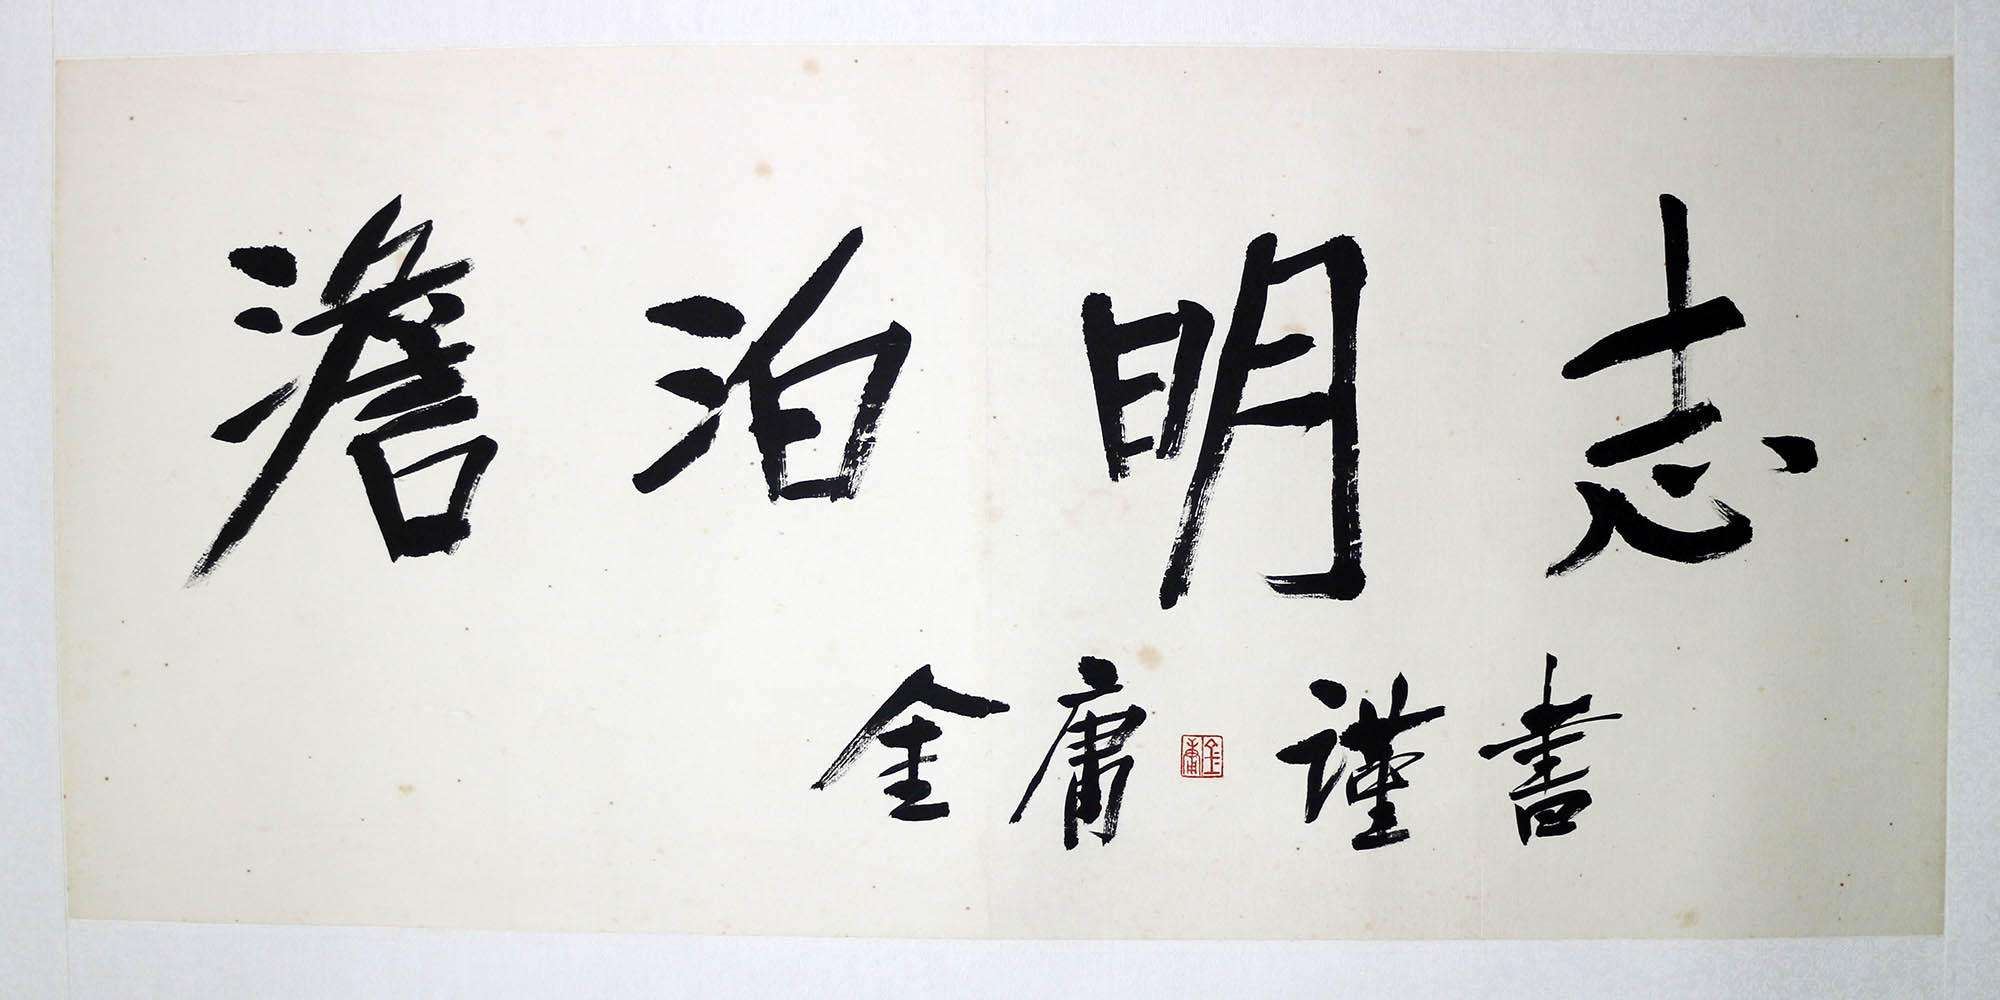 澹泊明志
金庸謹書
金庸